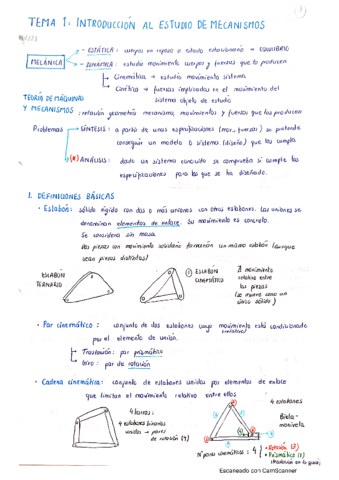 TEMA 1: INTRODUCCIÓN AL ESTUDIO DE MECANISMOS
MECÁNICA
- ESTÁTICA: cuerpos en reposo o estado estacionario → EQUILIBRIO
- DINÁMICA: estudia movimiento cuerpos y fuerzas que lo producen
Cinemática → estudia movimiento sistema
Cinética → fuerzas implicadas en el movimiento del
sistema objeto de estudio
TEORÍA DE MÁQUINAS
Y MECANISMOS: relación geometría mecanismo, movimientos y fuerzas que los producen
Problemas
SÍNTESIS: a partir de unas especificaciones (mov., fuerzas) se pretende
conseguir un modelo o sistema (diseño) que las cumpla
(*) ANÁLISIS: dado un sistema conocido se comprueba si cumple las
especificaciones para las que se ha diseñado.
1. DEFINICIONES BÁSICAS
• Eslabón: sólido rígido con dos o más uniones con otros eslabones. Las uniones se
denominan elementos de enlace. Su movimiento es concreto.
Se considera sin masa
Dos piezas con movimiento solidario formarían un mismo eslabón (aunque
sean piezas distintas)
ESLABÓN
TERNARIO
① ESLABÓN
CINEMÁTICO
∄ movimiento
relativo entre
las piezas
(se mueve como un
único sólido)
• Par cinemático: conjunto de dos eslabones cuyo movimiento está condicionado
(relativo)
por el elemento de unión.
Traslación: par prismático
Giro: par de rotación
• Cadena cinemática: conjunto de eslabones unidos por elementos de enlace
que limitan el movimiento relativo entre ellos
4 barras:
4 eslabones binarios
unidos → pares
de rotación (4)
4 eslabones
Biela-
manivela
Nº pares cinemáticos: 4
• Rotación (3)
• Prismático (1)
Escaneado con CamScanner